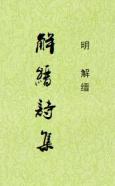 明 解缙
解縉詩集